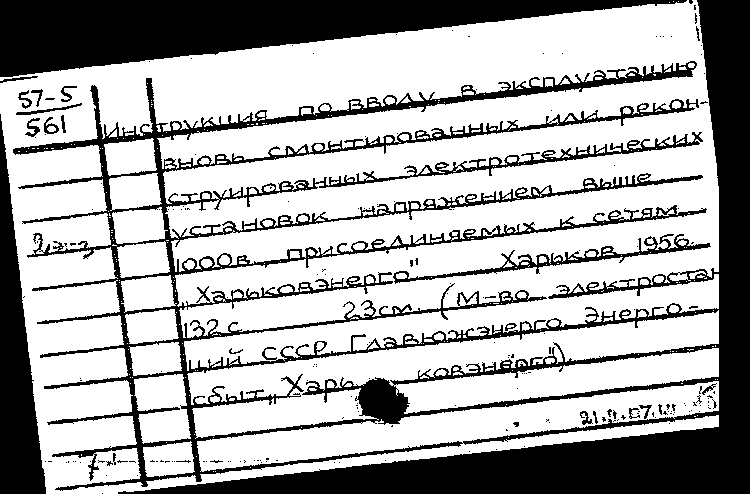 57-5
561
Инструкция по вводу в эксплуатацию
вновь смонтированных или рекон-
струированных электротехнических
установок напряжением выше
1000в., присоединяемых к сетям
„Харьковэнерго" Харьков, 1956.
132 с. 23см. (М-во электростан
ций СССР. Главюжэнерго. Энерго-
сбыт „Харьковэнерго").